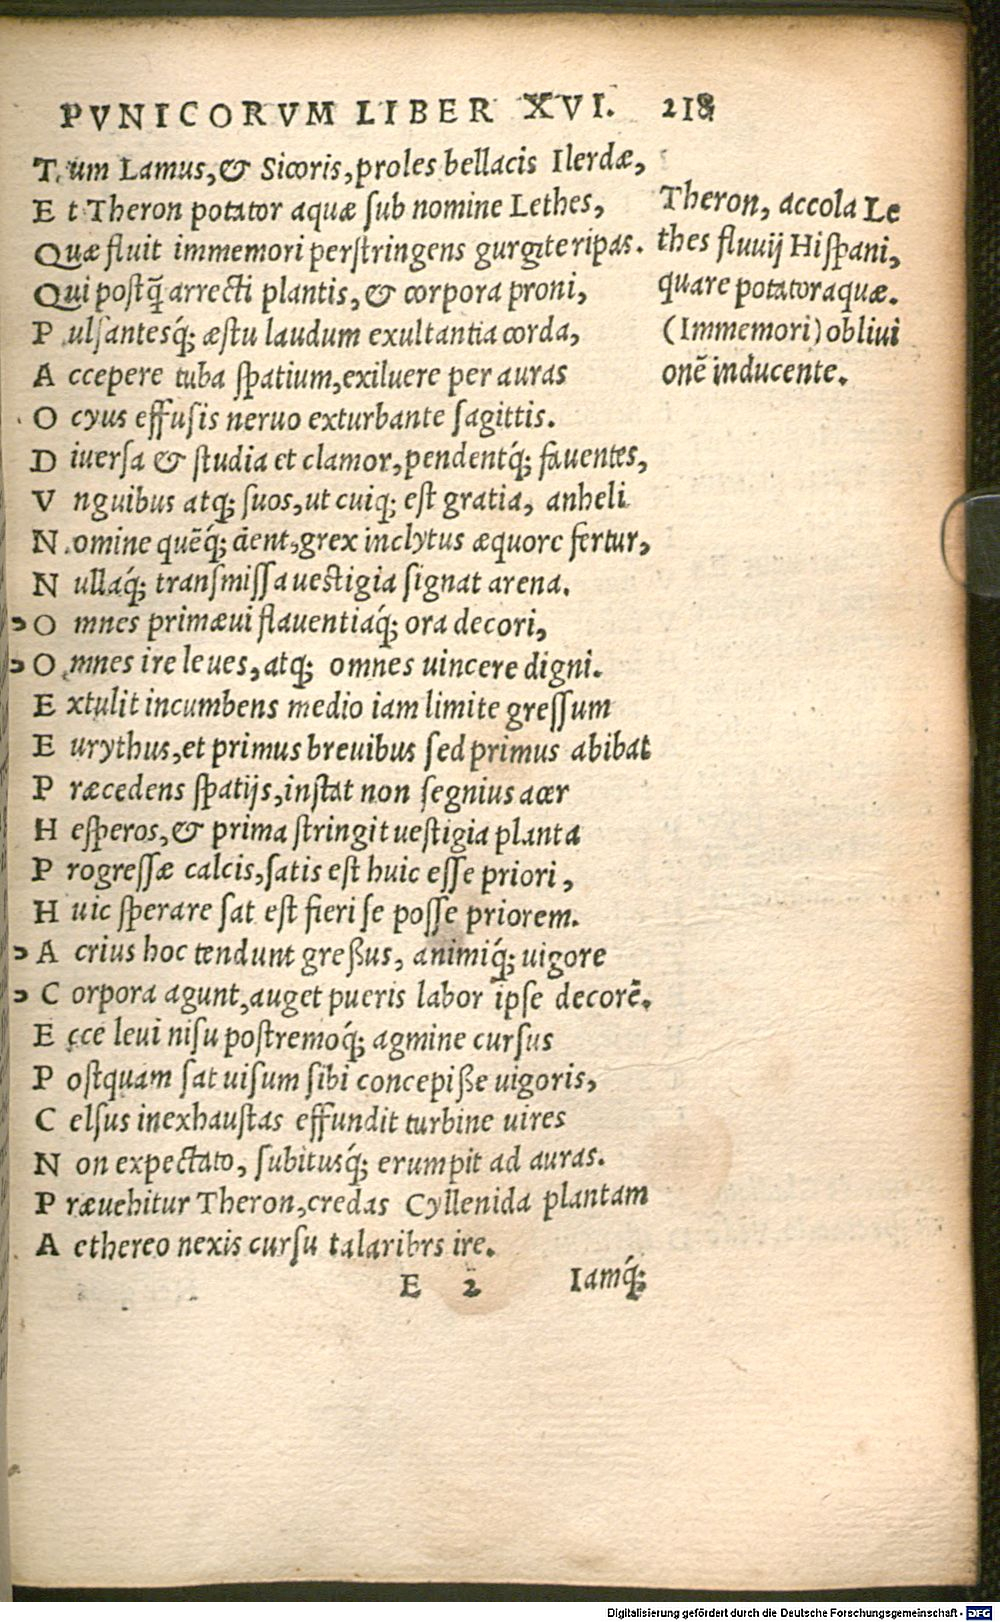 PVNICORVM LIBER XVI. 218
Tum Lamus, & Sicoris, proles bellacis Ilerdæ,
Et Theron potator aquæ ſub nomine Lethes,
Quæ fluit immemori perſtringens gurgite ripas.
Qui poſtq̃ arrecti plantis, & corpora proni,
Pulſantesq́; æſtu laudum exultantia corda,
Accepere tuba ſpatium, exiluere per auras
Ocyus effuſis neruo exturbante ſagittis.
Diuerſa & ſtudia et clamor, pendentq́; fauentes,
Vnguibus atq; ſuos, ut cuiq; eſt gratia, anheli
Nomine quēq́; ciẽnt, grex inclytus æquore fertur,
Nullaq́; tranſmiſſa ueſtigia ſignat arena.
Omnes primæui flauentiaq́; ora decori,
Omnes ire leues, atq; omnes uincere digni.
Extulit incumbens medio iam limite greſſum
Eurythus, et primus breuibus ſed primus abibat
Præcedens ſpatijs, inſtat non ſegnius acer
Heſperos, & prima ſtringit ueſtigia planta
Progreſſæ calcis, ſatis eſt huic eſſe priori,
Huic ſperare ſat eſt fieri ſe poſſe priorem.
Acrius hoc tendunt greßus, animiq́; uigore
Corpora agunt, auget pueris labor ipſe decorẽ.
Ecce leui niſu poſtremoq́; agmine curſus
Poſtquam ſat uiſum ſibi concepiße uigoris,
Celſus inexhauſtas effundit turbine uires
Non expectato, ſubitusq́; erumpit ad auras.
Præuehitur Theron, credas Cyllenida plantam
Aethereo nexis curſu talaribrs ire.
E 2 Iamq́;
Theron, accola Le
thes fluuij Hiſpani,
quare potator aquæ.
(Immemori) obliui
onẽ inducente.
Digitalisierung gefördert durch die Deutsche Forschungsgemeinschaft - DFG